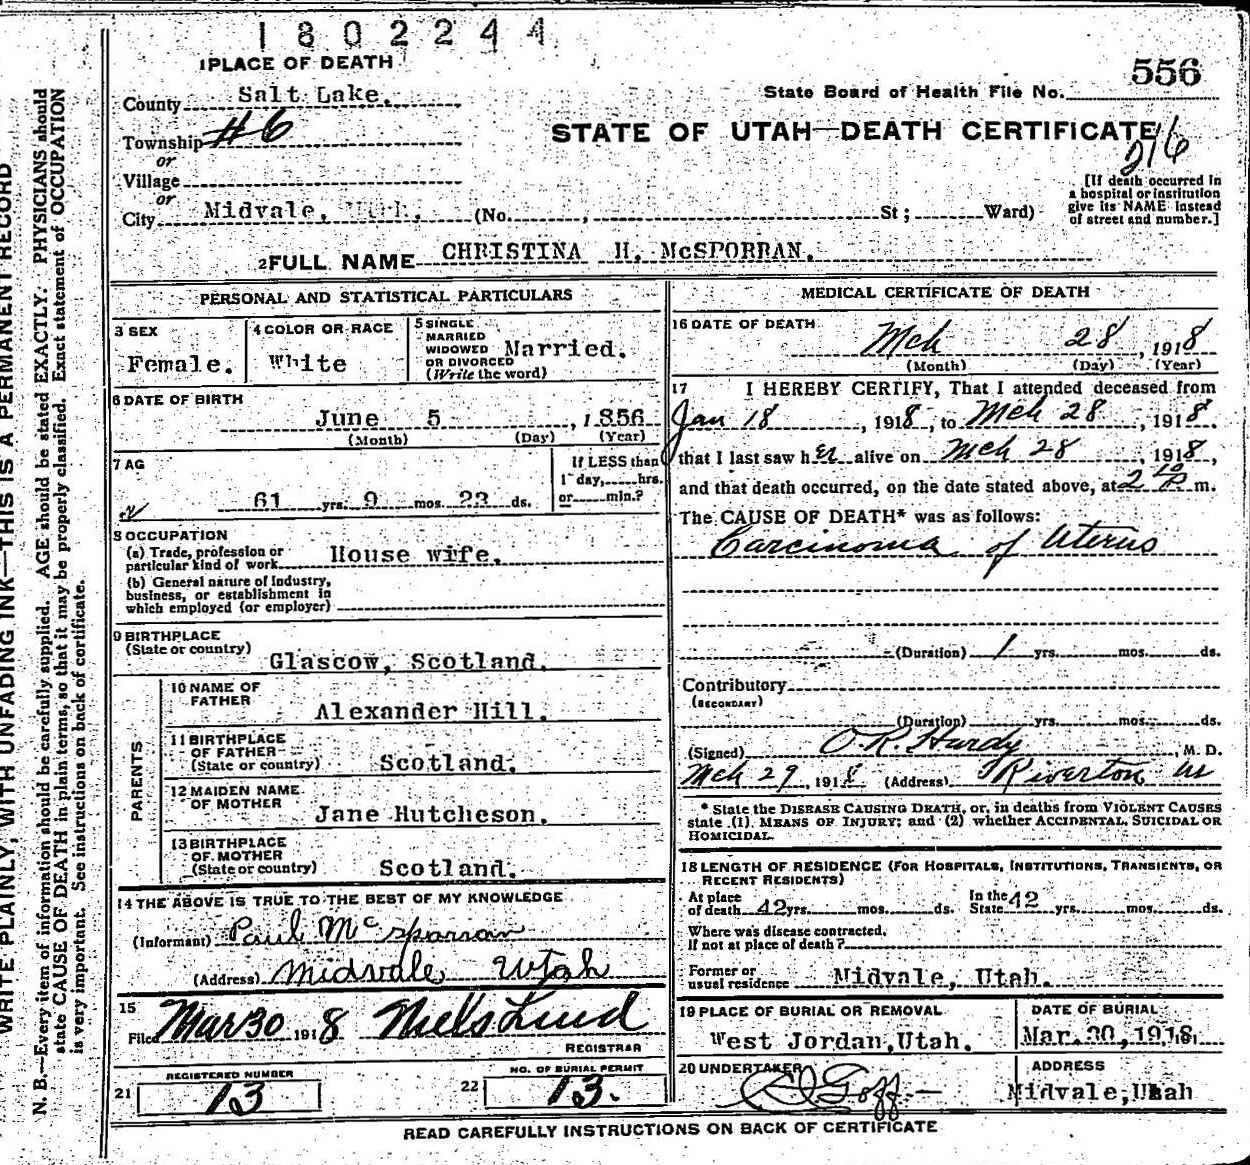 1802244
1 PLACE OF DEATH
556
County Salt Lake.
State Board of Health File No.
Township #6
STATE OF UTAH—DEATH CERTIFICATE
216
or
Village
or
City Midvale, (No. , St; Ward)
[If death occurred in
a hospital or institution
give its NAME instead
of street and number.]
2 FULL NAME CHRISTINA H. McSPORRAN.
PERSONAL AND STATISTICAL PARTICULARS
3 SEX
Female.
4 COLOR OR RACE
White
5 SINGLE
MARRIED
WIDOWED
OR DIVORCED
(Write the word)
Married.
6 DATE OF BIRTH
June 5 , 1856
(Month) (Day) (Year)
7 AG
61 yrs. 9 mos. 23 ds.
If LESS than
1 day, hrs.
or min.?
8 OCCUPATION
(a) Trade, profession or
particular kind of work House wife.
(b) General nature of industry,
business, or establishment in
which employed (or employer)
9 BIRTHPLACE
(State or country)
Glascow, Scotland.
PARENTS
10 NAME OF
FATHER
Alexander Hill.
11 BIRTHPLACE
OF FATHER
(State or country) Scotland.
12 MAIDEN NAME
OF MOTHER
Jane Hutcheson.
13 BIRTHPLACE
OF MOTHER
(State or country) Scotland.
14 THE ABOVE IS TRUE TO THE BEST OF MY KNOWLEDGE
(Informant) Paul McSparran
(Address) Midvale Utah
15
Filed Mar 30 1918 Niels Lind
REGISTRAR
REGISTERED NUMBER
21 13
NO. OF BURIAL PERMIT
22 13.
MEDICAL CERTIFICATE OF DEATH
16 DATE OF DEATH
Mch 28 , 1918
(Month) (Day) (Year)
17 I HEREBY CERTIFY, That I attended deceased from
Jan 18 , 1918, to Mch 28 , 1918.
that I last saw her alive on Mch 28 , 1918,
and that death occurred, on the date stated above, at 2 10 P m.
The CAUSE OF DEATH* was as follows:
Carcinoma of Uterus
(Duration) 1 yrs. mos. ds.
Contributory
(SECONDARY)
(Duration) yrs. mos. ds.
(Signed) O.R. Hardy , M. D.
Mch 29, 1918 (Address) Riverton Ut
* State the DISEASE CAUSING DEATH, or, in deaths from VIOLENT CAUSES
state (1) MEANS OF INJURY; and (2) whether ACCIDENTAL, SUICIDAL OR
HOMICIDAL.
18 LENGTH OF RESIDENCE (FOR HOSPITALS, INSTITUTIONS, TRANSIENTS, OR
RECENT RESIDENTS)
At place
of death 42 yrs. mos. ds.
In the
State 42 yrs. mos. ds.
Where was disease contracted,
if not at place of death?
Former or
usual residence Midvale, Utah.
19 PLACE OF BURIAL OR REMOVAL
West Jordan, Utah.
DATE OF BURIAL
Mar. 30, 1918, 191
20 UNDERTAKER
Goff
ADDRESS
Midvale, Utah
READ CAREFULLY INSTRUCTIONS ON BACK OF CERTIFICATE
WRITE PLAINLY, WITH UNFADING INK—THIS IS A PERMANENT RECORD
N. B.—Every item of information should be carefully supplied. AGE should be stated EXACTLY. PHYSICIANS should
state CAUSE OF DEATH in plain terms, so that it may be properly classified. Exact statement of OCCUPATION
is very important. See instructions on back of certificate.